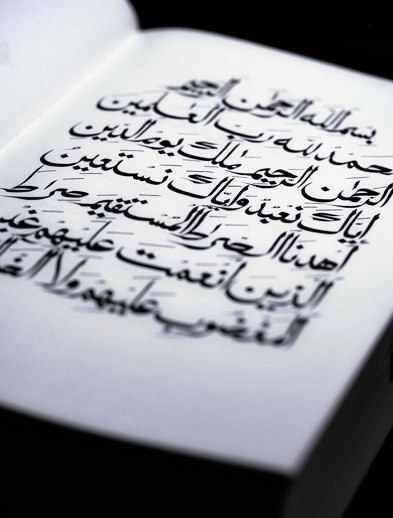 بسم الله الرحمن الرحيم
الحمد لله رب العلمين
الرحمن الرحيم ملك يوم الدين
اياك نعبد واياك نستعين
اهدنا الصراط المستقيم صراط
الذين انعمت عليهم غير
المغضوب عليهم ولا